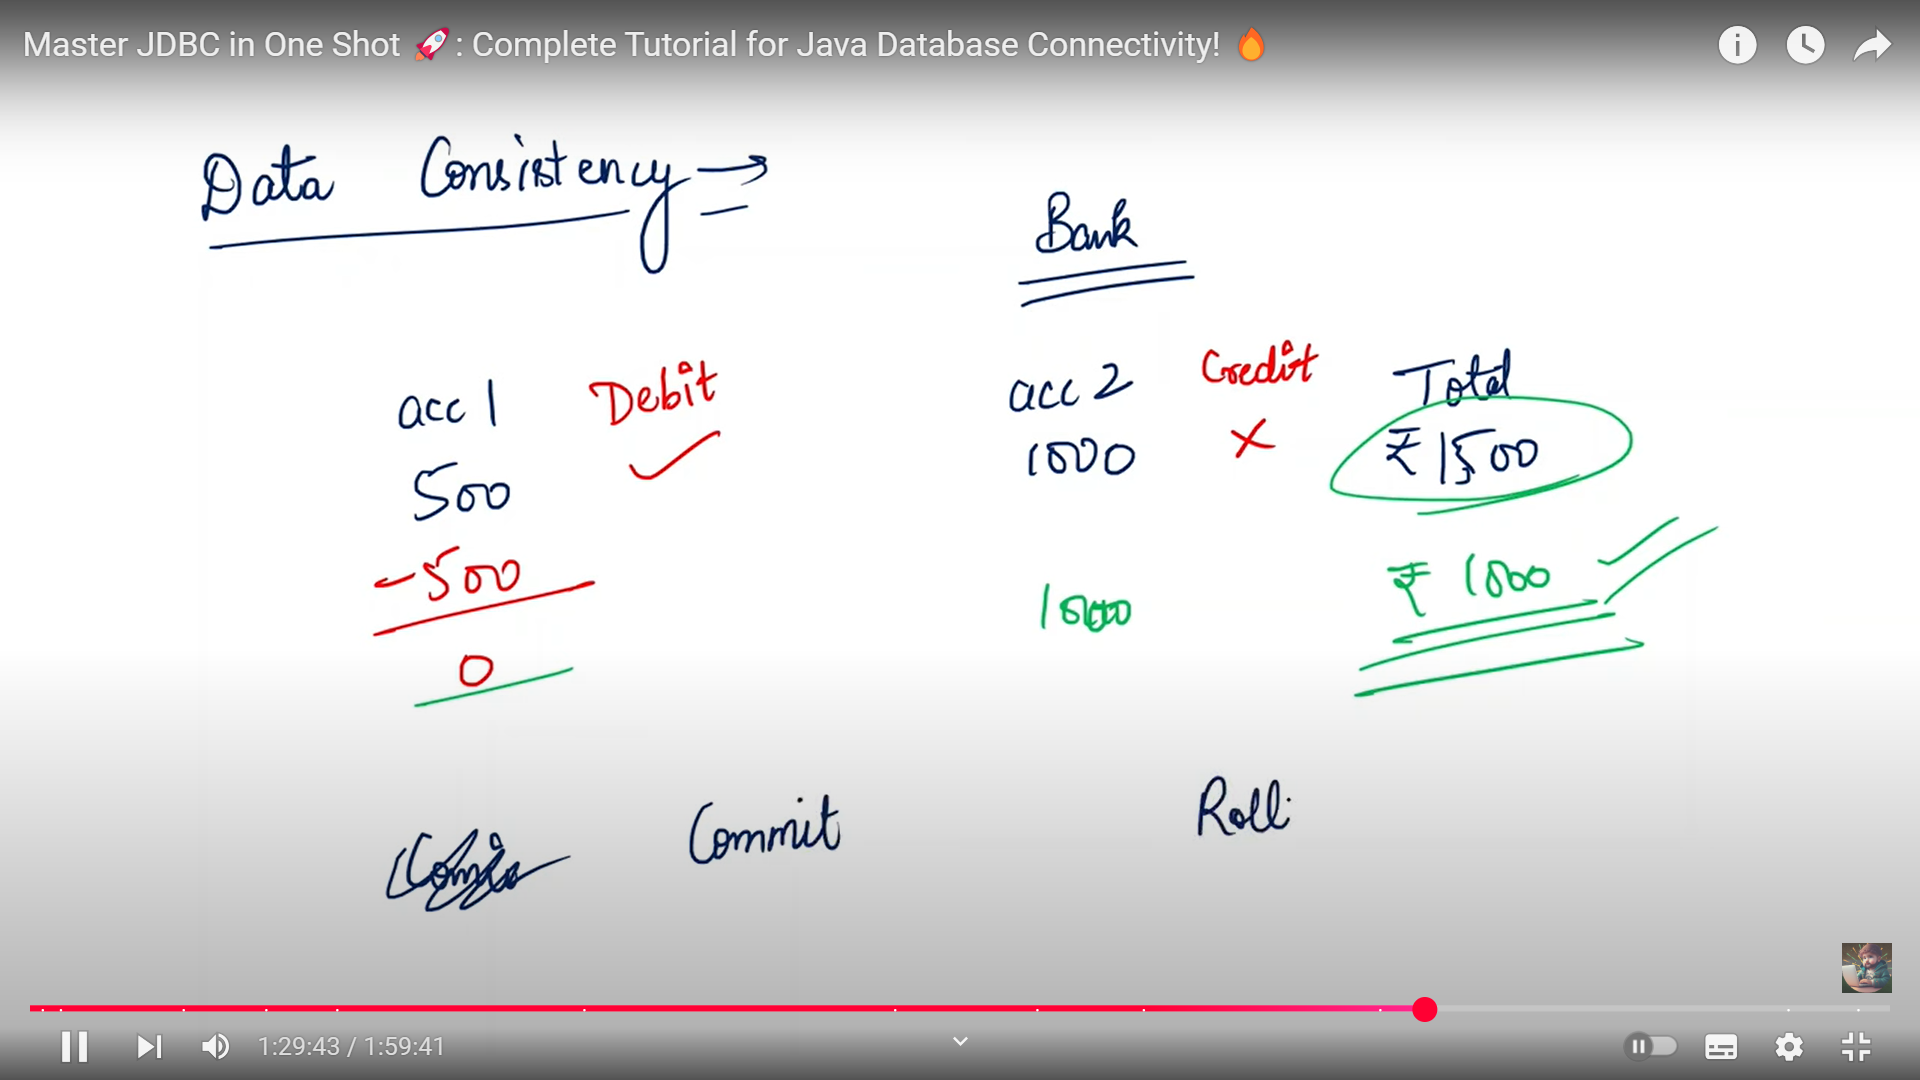 Master JDBC in One Shot 🚀 : Complete Tutorial for Java Database Connectivity! 🔥
Data Consistency →
Bank
acc 1 Debit ✓
500
-500
0
acc 2 Credit ✗
1000
1000
Total
₹ 1500
₹ 1000
Commit
Roll
1:29:43 / 1:59:41